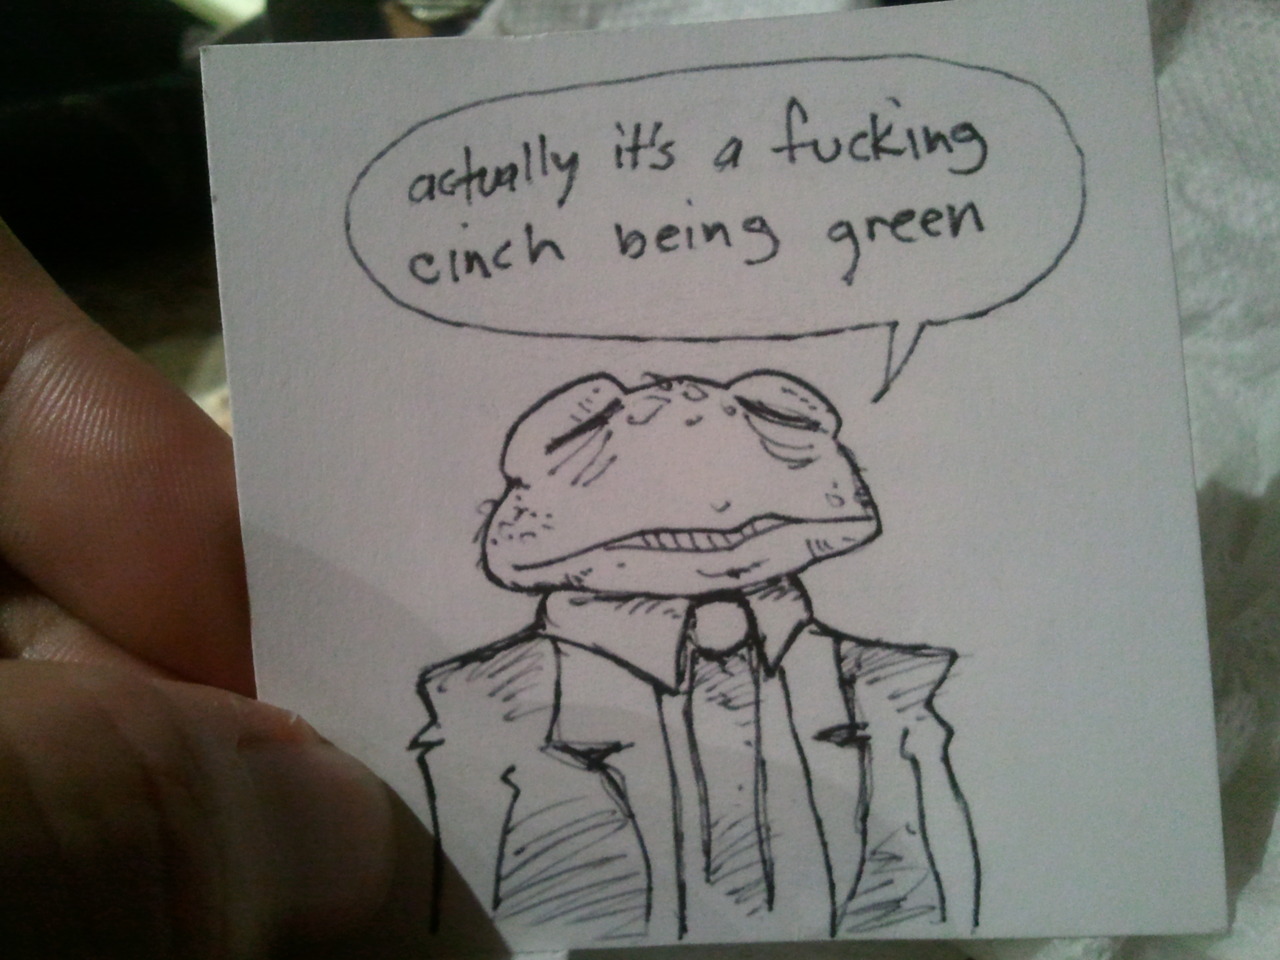 actually it's a fucking
cinch being green